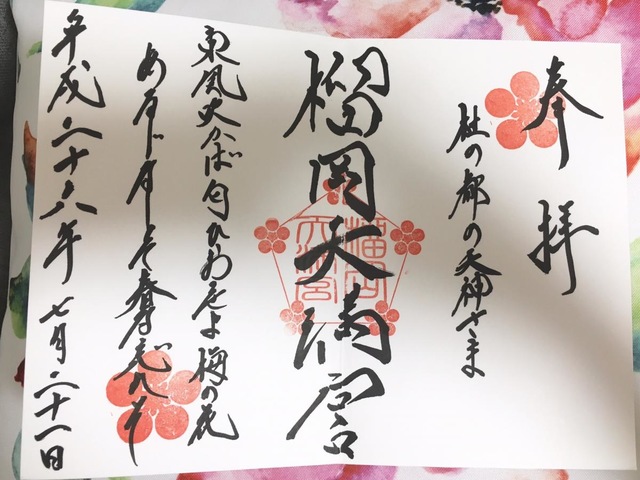 奉拝
杜の都の天神さま
榴岡天満宮
榴岡天満宮
東風吹かば匂ひおこせよ梅の花
あるじなしとて春な忘れそ
平成二十六年 七月二十一日